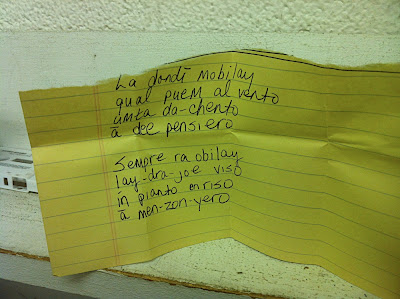 La dondi mobilay
qual puem al vento
umta da-chento
a dee pensiero
Sempre ra obilay
lay-dra-joe viso
in pianto en riso
a men-zon-yero